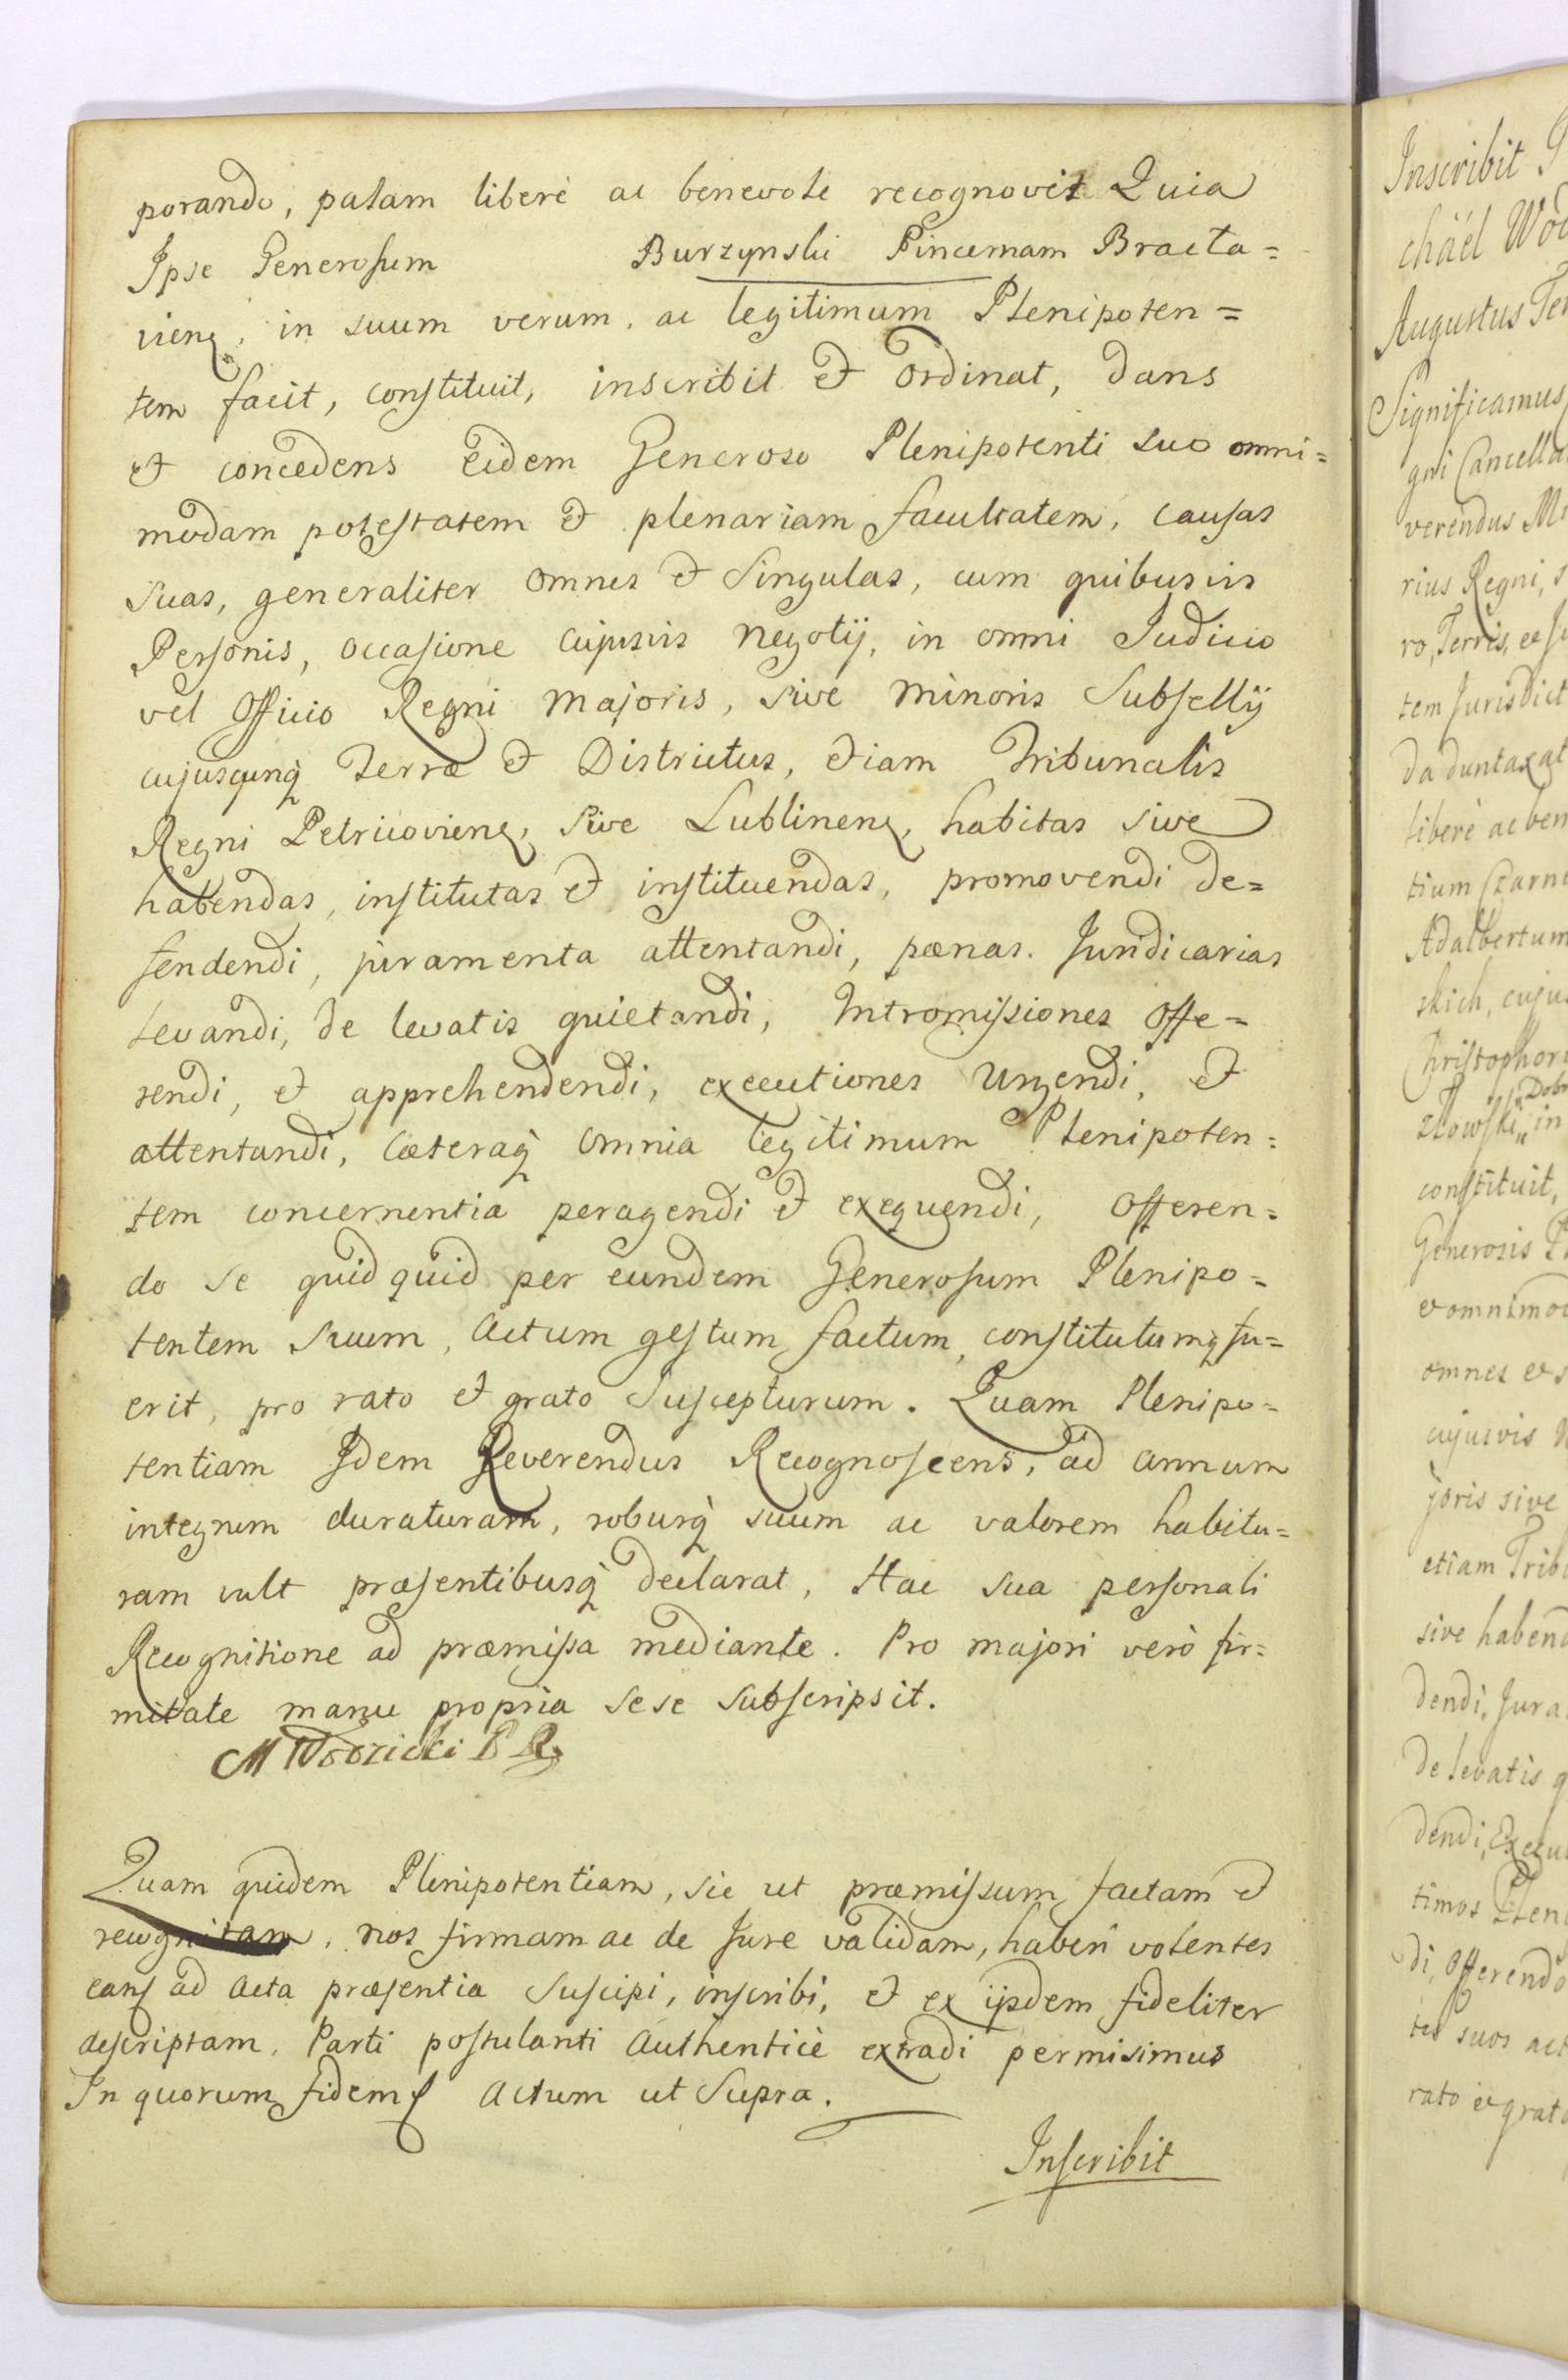 porando, palam liberè ac benevole recognovit Quia
Ipse Generosum Burzynski Pincernam Bracla=
vieñ, in suum verum, ac legitimum Plenipoten=
tem facit, constituit, inscribit et ordinat, dans
et concedens eidem Generoso Plenipotenti suo omni=
modam potestatem et plenariam facultatem, causas
suas, generaliter omnes et singulas, cum quibusvis
Personis, occasione cujusvis negotij, in omni Judicio
vel Officio Regni majoris, sive minoris Subsellij
cujuscunq̀ Terræ et Districtus, etiam Tribunalis
Regni Petricovienȩ, sive Lublinenȩ, habitas sive
habendas, institutas et instituendas, promovendi de=
fendendi, juramenta attentandi, pœnas Juridicarias
levandi, de levatis quietandi, Intromissiones offe=
rendi, et apprehendendi, executiones urgendi, et
attentandi, cæteraq̀ omnia legitimum Plenipoten=
tem concernentia peragendi et exequendi, Offeren=
do se quidquid per eundem Generosum Plenipo=
tentem suum, actum gestum factum, constitutumq̀ fu=
erit, pro rato et grato suscepturum. Quam Plenipo=
tentiam Idem Reverendus Recognoscens, ad annum
integrum duraturam, roburq̀ suum ac valorem habitu=
ram vult præsentibusq̀ declarat, Hac sua personali
Recognitione ad præmissa mediante. Pro majori verò fir=
mitate manu propria sese subscripsit.
M Wodzicki P R
Quam quidem Plenipotentiam, sic ut præmissum factam et
recognitam, nos firmam ac de Jure validam, haberi volentes
eanȩ ad Acta præsentia suscipi, inscribi, et ex ijsdem fideliter
descriptam, Parti postulanti authenticè extradi permisimus
In quorum fidem Actum ut supra.
Inscribit
Inscribit
chäel
Augustus
Significamus
gni Cancella
verendus
rius Regni,
ro, Terris, et
tem Jurisdict
da duntaxat
liberè ac ben
tium Czarn
Adalbertum
skich, cuju
Christophor
złowski in
constituit,
Generosis
et omnimod
omnes et s
cujusvis
joris sive
etiam Trib
sive habend
dendi, Jura
de levatis q
dendi, Execu
timos Plen
di, Offerendo
tes suos act
rato et grat